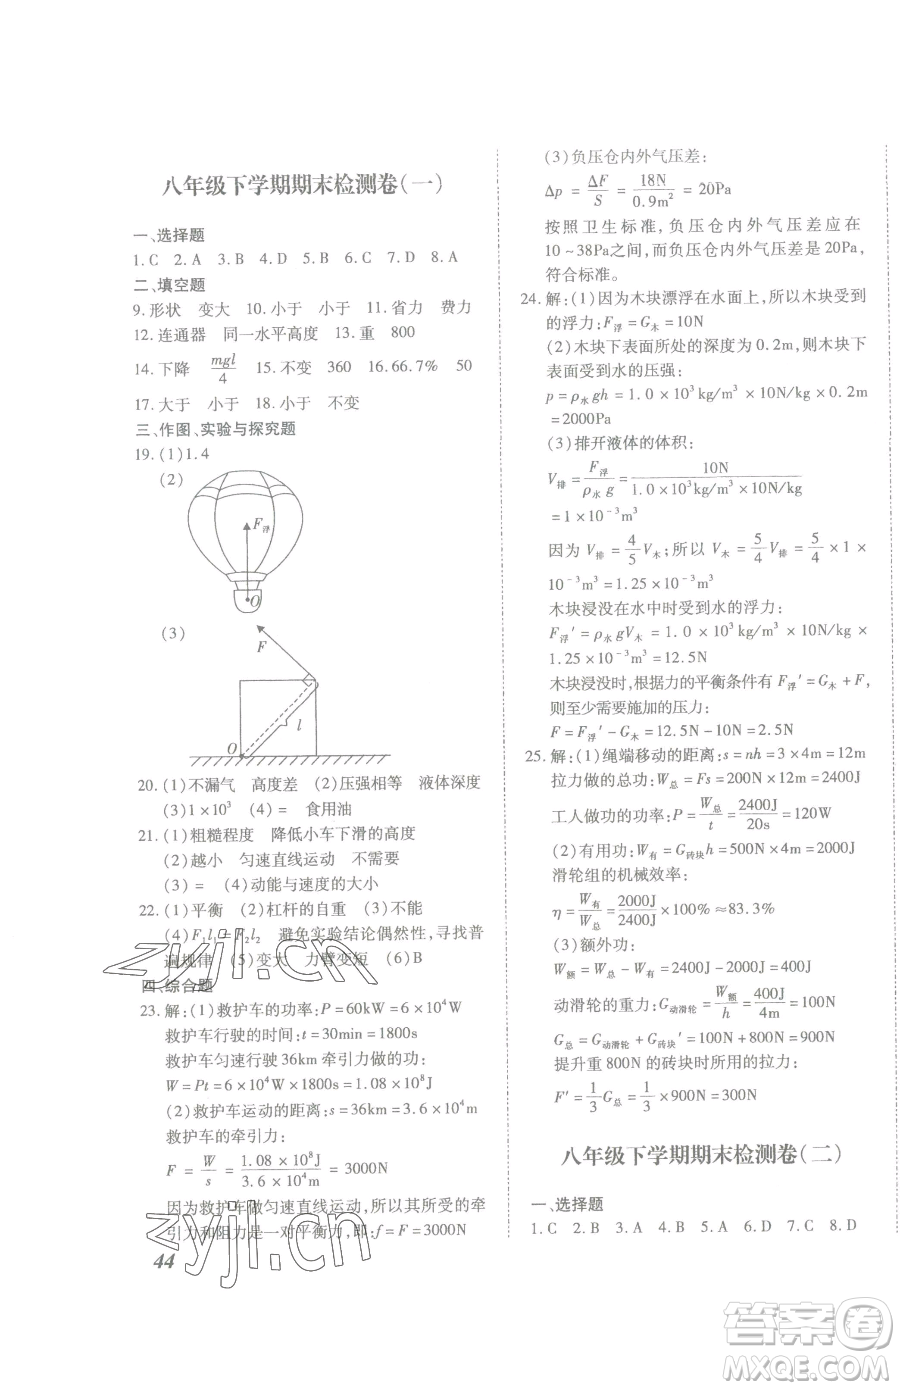 八年级下学期期末检测卷(一)
一、选择题
1.C 2.A 3.B 4.D 5.B 6.C 7.D 8.A
二、填空题
9.形状 变大 10.小于 小于 11.省力 费力
12.连通器 同一水平高度 13.重 800
14.下降 mgl/4 15.不变 360 16.66.7% 50
17.大于 小于 18.小于 不变
三、作图、实验与探究题
19.(1)1.4
(2)
F浮
O
(3)
F
l
O
20.(1)不漏气 高度差 (2)压强相等 液体深度
(3)1×10³ (4)= 食用油
21.(1)粗糙程度 降低小车下滑的高度
(2)越小 匀速直线运动 不需要
(3)= (4)动能与速度的大小
22.(1)平衡 (2)杠杆的自重 (3)不能
(4)F₁l₁=F₂l₂ 避免实验结论偶然性,寻找普
遍规律 (5)变大 力臂变短 (6)B
四、综合题
23.解:(1)救护车的功率:P=60kW=6×10⁴W
救护车行驶的时间:t=30min=1800s
救护车匀速行驶36km牵引力做的功:
W=Pt=6×10⁴W×1800s=1.08×10⁸J
(2)救护车运动的距离:s=36km=3.6×10⁴m
救护车的牵引力:
F=W/s=1.08×10⁸J/3.6×10⁴m=3000N
因为救护车做匀速直线运动,所以其所受的牵
引力和阻力是一对平衡力,即:f=F=3000N
44
(3)负压仓内外气压差:
Δp=ΔF/S=18N/0.9m²=20Pa
按照卫生标准,负压仓内外气压差应在
10~38Pa之间,而负压仓内外气压差是20Pa,
符合标准。
24.解:(1)因为木块漂浮在水面上,所以木块受到
的浮力:F浮=G木=10N
(2)木块下表面所处的深度为0.2m,则木块下
表面受到水的压强:
p=ρ水gh=1.0×10³kg/m³×10N/kg×0.2m
=2000Pa
(3)排开液体的体积:
V排=F浮/ρ水g=10N/1.0×10³kg/m³×10N/kg
=1×10⁻³m³
因为V排=4/5V木;所以V木=5/4V排=5/4×1×
10⁻³m³=1.25×10⁻³m³
木块浸没在水中时受到水的浮力:
F浮′=ρ水gV木=1.0×10³kg/m³×10N/kg×
1.25×10⁻³m³=12.5N
木块浸没时,根据力的平衡条件有F浮′=G木+F,
则至少需要施加的压力:
F=F浮′-G木=12.5N-10N=2.5N
25.解:(1)绳端移动的距离:s=nh=3×4m=12m
拉力做的总功:W总=Fs=200N×12m=2400J
工人做功的功率:P=W总/t=2400J/20s=120W
(2)有用功:W有=G砖块h=500N×4m=2000J
滑轮组的机械效率:
η=W有/W总=2000J/2400J×100%≈83.3%
(3)额外功:
W额=W总-W有=2400J-2000J=400J
动滑轮的重力:G动滑轮=W额/h=400J/4m=100N
G总=G动滑轮+G砖块′=100N+800N=900N
提升重800N的砖块时所用的拉力:
F′=1/3G总=1/3×900N=300N
八年级下学期期末检测卷(二)
一、选择题
1.C 2.B 3.A 4.B 5.A 6.D 7.C 8.D
zyjl.cn
zyjl.cn
答案圈
MXQE.COM